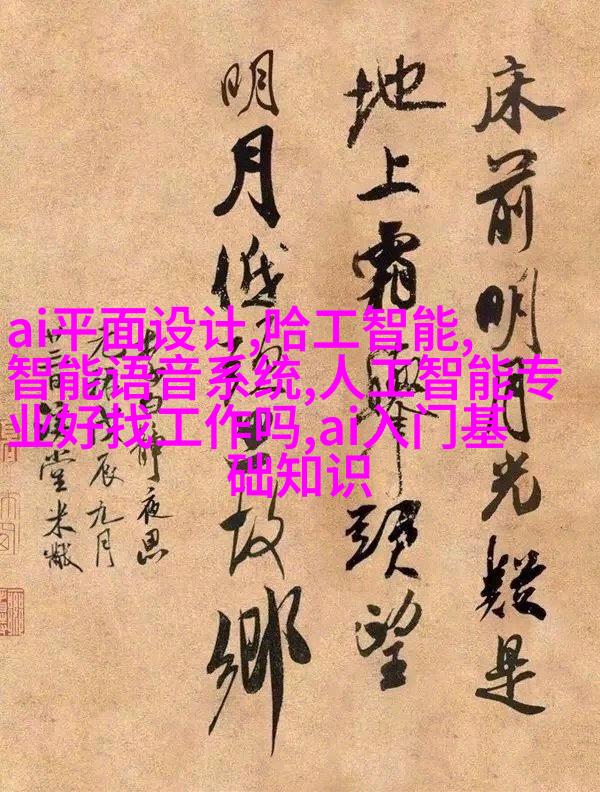 床前明月光疑是
地上霜舉頭望
明月低頭思故鄉
李白静夜思
元祐戊辰九月
堂米黻
ai平面设计,哈工智能,
智能语音系统,人工智能专
业好找工作吗,ai入门基
础知识